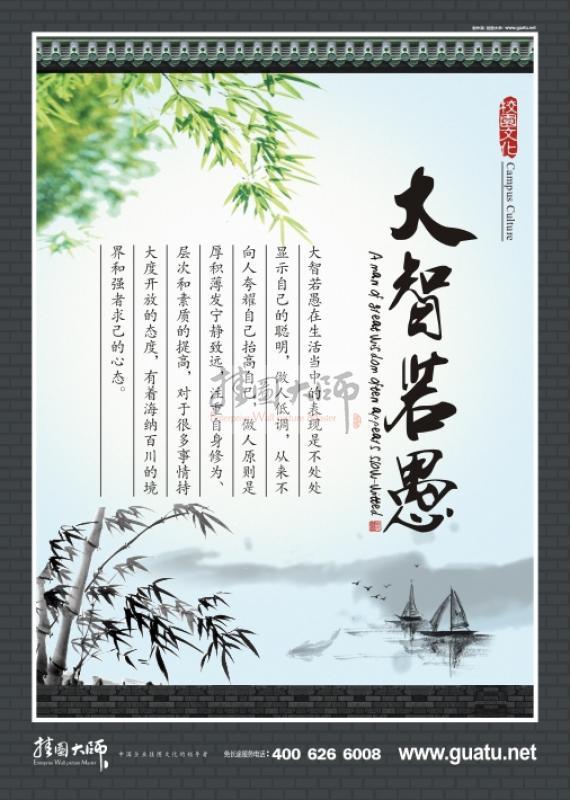 www.guatu.net
校园文化
Campus Culture
大智若愚
A man of great wisdom often appears slow-witted
大智若愚在生活当中的表现是不处处
显示自己的聪明，做人低调，从来不
向人夸耀自己抬高自己，做人原则是
厚积薄发宁静致远，注重自身修为、
层次和素质的提高，对于很多事情持
大度开放的态度，有着海纳百川的境
界和强者求己的心态。
挂图大师
Enterprise Wall picture Master
挂图大师
Enterprise Wall picture Master
中国企业挂图文化的领导者
免长途服务电话：400 626 6008
www.guatu.net